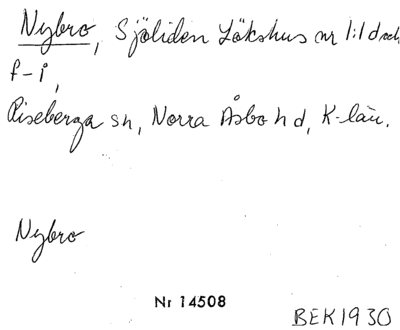 Nybro, Sjöliden Lökshus nr 1:1 d och
f-i,
Riseberga sn, Norra Åsbo hd, K-län.
Nybro
Nr 14508
BEK 1930